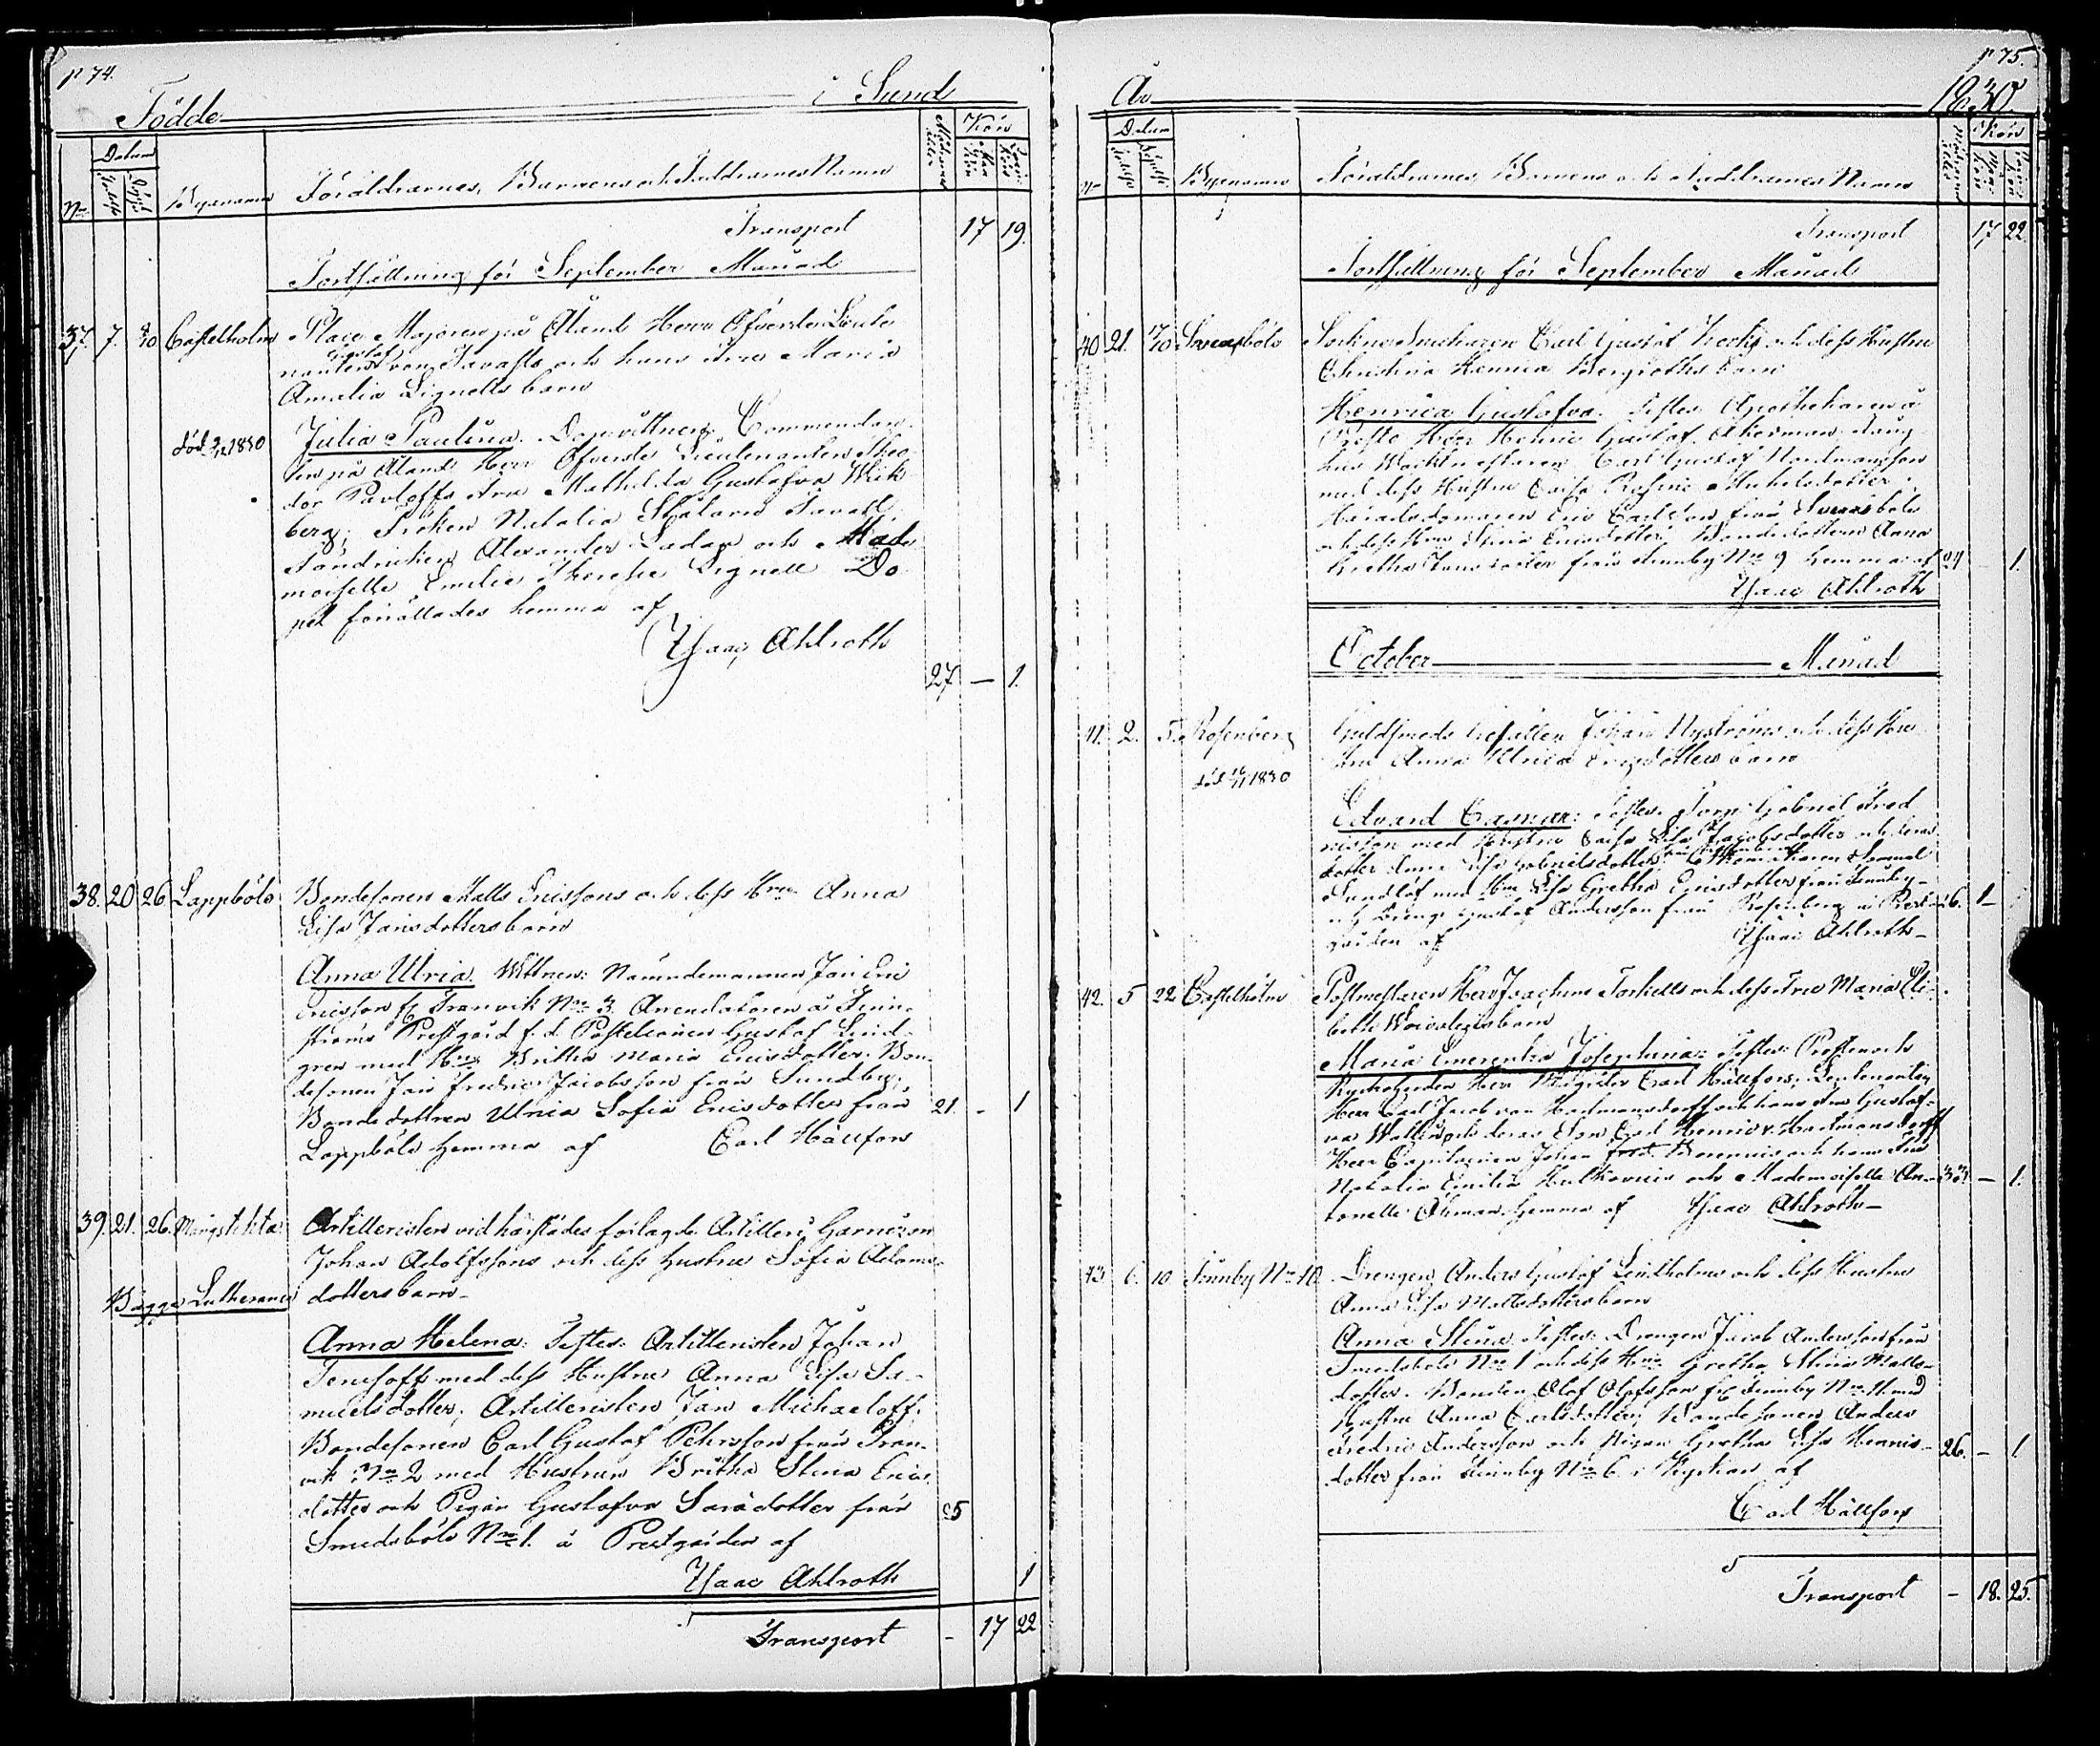 p 74.
Födde i Sund
No Datum Byxnamn Föräldrarnes, Barnens och Faddrarnes Namn Kön
Transport 17 19.
Fortsättning för September Månad
37. 7. 8/10 Castelholm Place Majoren på Åland Herr Öfverste Lieute
nanten Gustaf von Tavasts och hans Fru Maria
Amalia Lignells barn
död 1830 Julia Paulina. Dopvittnen: Commendan
ten på Åland Herr Öfverste Lieutenanten Theo
dor Pavloffs Fru Mathilda Gustafva Wick
berg; Fröken Natalia Tavast;
Fändricken Alexander och Made
moiselle Emilie Therese Lignell Do
pet förättades hemma af
Isaac Ahlroth
27 — 1.
38. 20 26 Lappbölo Bondesonen Matts Ericssons och dess Hru Anna
Lisa Jansdotters barn
Anna Ulrica. Wittnen: Nämndemannen Jan Eric
Ericsson fr Tranvik No 3. Arendatoren å Finn
ströms Prestgård f.d. Postelionen Gustaf Lind
gren med Hru Britha Maria Ericsdotter. Bon
desonen Jan Fredric Jacobsson från Sundby;
Bondedottren Ulrica Sofia Ericsdotter från 21. - 1
Lappbölo hemma af Carl Hällfors
39. 21. 26. Mångstekta Artilleristen vid härstädes förlagde Artilleri Garnizon
Johan Adolfssons och dess hustru Sofia Adams
Bägge Lutheraner dotters barn
Anna Helena: Testes: Artilleristen Johan
Jenisoff med dess Hustru Anna Lisa Sa
muelsdotter; Artilleristen Jan Michaeloff.
Bondesonen Carl Gustaf Pehrsson från Tran
vik No 2 med Hustrun Britha Stina Erics
dotter och Pigan Gustafva Sarādotter från 25
Smedsbölo No 1. å Prestgården af
Isaac Ahlroth 1
Transport - 17 22
p 75.
År 1830
No Datum Byxnamn Föräldrarnes, Barnens och Faddrarnes Namn Kön
Transport 17 22
Fortsättning för September Månad
40 21. 7/10 Svensbölo Sockne Snickaren Carl Gustaf och dess Hustru
Christina Henrica Bergroths barn
Henrica Gustafva. Testes: Apothekaren å
Herr Henric Gustaf Åkerman
Wacktmestaren Carl Gustaf Nordmansson
med dess Hustru Caisa Michelsdotter
Häradsdomaren Eric Carlsson från Svensbölo
och dess Hru Stina Ericsdotter, Bondedottern Anna
Gretha Jansdotter från Finnby No 9 hemma af 24 - 1.
Isaac Ahlroth
October Månad
41. 2. 5. Rosenberg Guldsmeds Gesällen Johan Nyströms och dess Hus
tru Anna Ulrica Ericsdotters barn
död 1830
Edvard Casmir: Testes: Torp. Gabriel Fred
ricsson med Hustru Caisa Lisa Jacobsdotter och deras
dotter Anna Lisa Gabrielsdotter; Samuel
Sundlöf med Hru Lisa Gretha Ericsdotter från Finnby
och Drenge Gustaf Andersson från Rosenberg å Prest 26. 1 —
gården af Isaac Ahlroth
42. 5 22 Castelholm Postmestaren Herr Joachim Torkells och dess Fru Maria Eli
beths barn
Maria Emerentia Josephina: Testes: Prosten och
Kyrkoherden Herr Magister Carl Hällfors; Lieutenanten
Herr Carl Jacob von Hartmansdorff och hans Fru Gustaf
va Wallin och deras Son Carl Henric v. Hartmansdorff
Herr Capitainen Johan Borenius och hans Fru
Natalia Emilia och Mademoiselle An 33 — 1.
tonette Öhman hemma af Isaac Ahlroth
43. 6. 10 Finnby No 10. Drengen Anders Gustaf Lindholms och dess Hustru
Anna Lisa Mattsdotters barn
Anna Stina. Testes: Drengen Jacob Andersson från
Smedsbölo No 1 och dess Hru Gretha Stina Matts
dotter. Bonden Olof Olofsson fr Finnby No 11 med
Hustru Anna Carlsdotter; Bondesonen Anders
Fredric Andersson och Pigan Gretha Lisa Henrics 26. - 1
dotter från Finnby No 6 i Kyrkan af
Carl Hällfors
Transport - 18. 25.